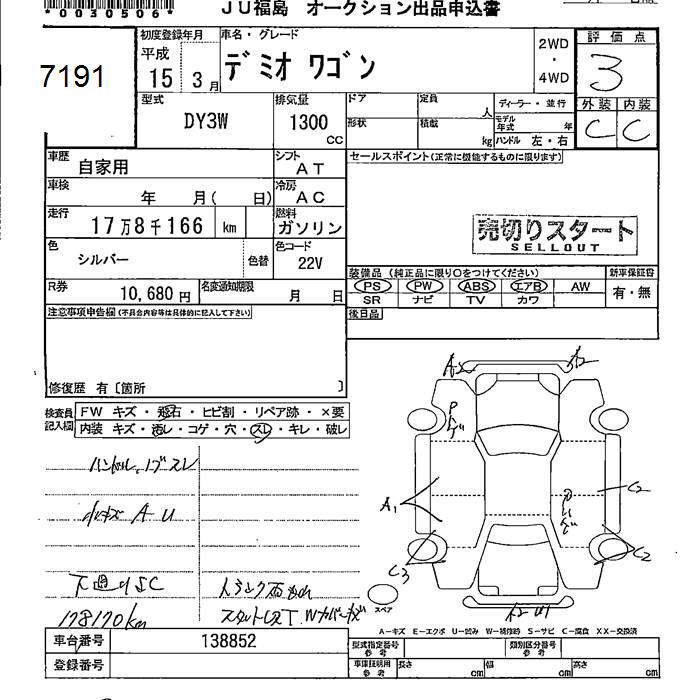 *0030506*
JU福島 オークション出品申込書
7191
初度登録年月
平成
15 3月
車名・グレード
デミオ ワゴン
2WD
・
4WD
評価点
3
外装 内装
C C
型式
DY3W
排気量
1300
CC
ドア
定員
人
ディーラー・並行
形状
積載
kg
モデル年式
年
ハンドル 左・右
車歴
自家用
シフト
AT
セールスポイント(正常に機能するものに限ります)
車検
年 月( 日)
冷房
AC
走行
17万8千166 km
燃料
ガソリン
売切りスタート
SELLOUT
色
シルバー
色替
色コード
22V
装備品(純正品に限り○をつけてください)
新車保証書
PS PW ABS エアB AW
有・無
SR ナビ TV カワ
R券
10,680円
名変通知期限
月 日
後日品
注意事項申告欄(不具合内容等は具体的に記入して下さい)
修復歴 有〔箇所 〕
検査員記入欄
FW キズ・飛石・ヒビ割・リペア跡・×要
内装 キズ・汚レ・コゲ・穴・スレ・キレ・破レ
A2 A2
ハンドル、ノブスレ
小キズ A U
A1
C2
C2
C3
下廻りSC
178170km
スペア
A-キズ E-エクボ U-凹み W-補修跡 S-サビ C-腐食 XX-交換済
車台番号
138852
型式指定番号
参考
類別区分番号
参考
登録番号
車庫証明用
参考
長さ
cm
幅
cm
高さ
cm